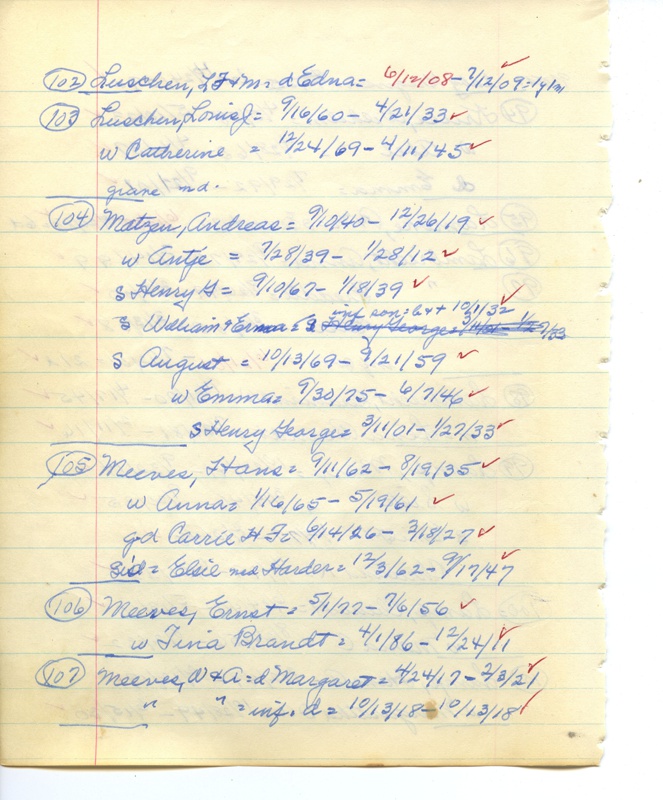 102 Luschen, L F & M = d Edna = 6/12/08 - 7/12/09 = 1y 1m
103 Luschen, Louis J = 9/16/60 - 4/21/33 ✓
w Catherine = 12/24/69 - 4/11/45 ✓
grave md.
104 Matzen, Andreas = 9/10/40 - 12/26/19 ✓
w Antje = 7/28/39 - 1/28/12 ✓
s Henry G = 9/10/67 - 1/18/39 ✓
inf son: b & d 10/1/32 ✓
s William & Erma = s Henry George = 3/11/01 - 1/27/33
s August = 10/13/69 - 9/21/59 ✓
w Emma = 9/30/75 - 6/7/46 ✓
s Henry George = 3/11/01 - 1/27/33 ✓
105 Meeves, Hans = 9/11/62 - 8/19/35 ✓
w Anna = 1/16/65 - 5/19/61 ✓
g-d Carrie H F = 6/14/26 - 3/18/27 ✓
= Elsie md Harder = 12/3/62 - 9/17/47 ✓
106 Meeves, Ernst = 5/1/77 - 7/6/56 ✓
w Tina Brandt = 4/1/86 - 12/24/11 ✓
107 Meeves, W & A = d Margaret = 4/24/17 - 2/3/21 ✓
" " = inf. d = 10/13/18 - 10/13/18 ✓